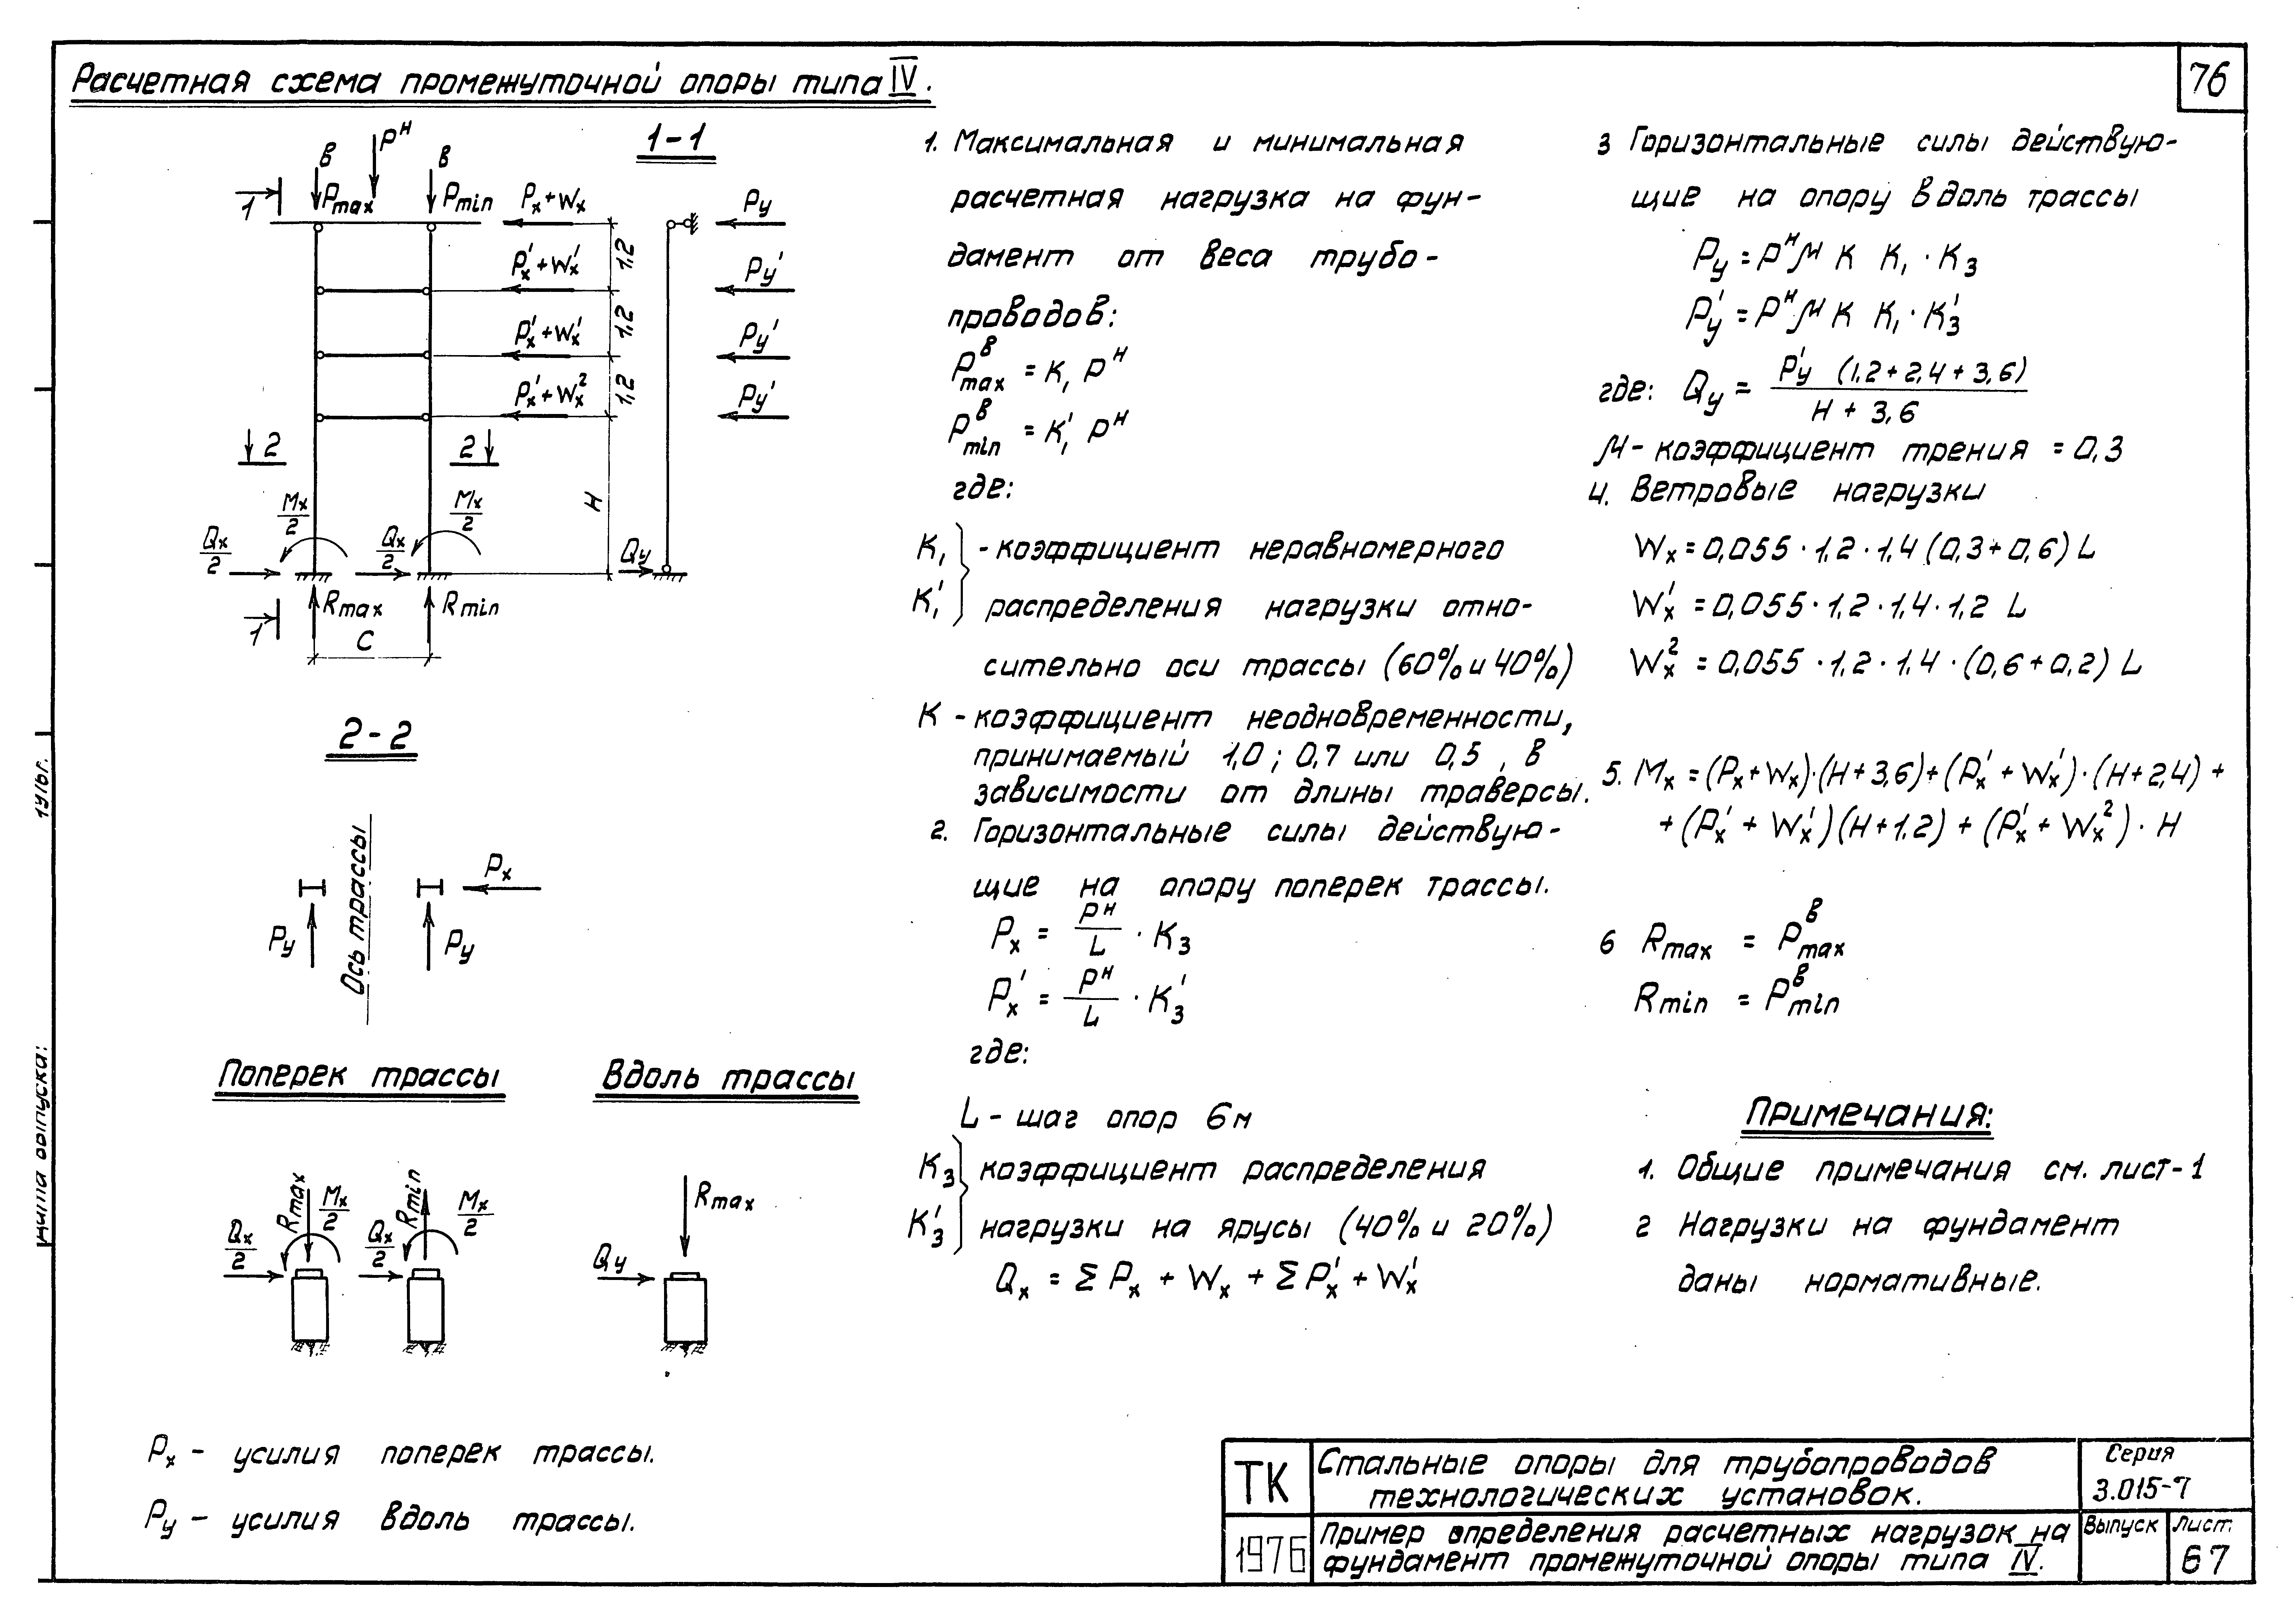 Расчетная схема промежуточной опоры типа IV.
76
Pᴴ
в
Pmax
в
Pmin
1
Px + Wx
Px' + Wx'
Px' + Wx'
Px' + Wx²
1,2
1,2
1,2
H
2
2
Mx/2
Mx/2
Qx/2
Qx/2
Rmax
Rmin
1
C
1-1
Py
Py'
Py'
Py'
Qy
2-2
Px
Py
Py
Ось трассы
Поперек трассы
Qx/2
Rmax
Mx/2
Qx/2
Rmin
Mx/2
Вдоль трассы
Rmax
Qy
Px - усилия поперек трассы.
Py - усилия вдоль трассы.
1. Максимальная и минимальная
расчетная нагрузка на фун-
дамент от веса трубо-
проводов:
Pᵇmax = K₁ Pᴴ
Pᵇmin = K₁' Pᴴ
где:
K₁
K₁'
- коэффициент неравномерного
распределения нагрузки отно-
сительно оси трассы (60% и 40%)
K - коэффициент неодновременности,
принимаемый 1,0; 0,7 или 0,5, в
зависимости от длины траверсы.
2. Горизонтальные силы действую-
щие на опору поперек трассы.
Px = Pᴴ/L · K₃
Px' = Pᴴ/L · K₃'
где:
L - шаг опор 6м
K₃
K₃'
коэффициент распределения
нагрузки на ярусы (40% и 20%)
Qx = Σ Px + Wx + Σ Px' + Wx'
3 Горизонтальные силы действую-
щие на опору вдоль трассы
Py = Pᴴ μ K K₁ · K₃
Py' = Pᴴ μ K K₁ · K₃'
где: Qy = Py' (1,2 + 2,4 + 3,6) / H + 3,6
μ - коэффициент трения = 0,3
4. Ветровые нагрузки
Wx = 0,055 · 1,2 · 1,4 (0,3 + 0,6) L
Wx' = 0,055 · 1,2 · 1,4 · 1,2 L
Wx² = 0,055 · 1,2 · 1,4 · (0,6 + 0,2) L
5. Mx = (Px + Wx)·(H + 3,6) + (Px' + Wx')·(H + 2,4) +
+ (Px' + Wx')(H + 1,2) + (Px' + Wx²) · H
6 Rmax = Pᵇmax
Rmin = Pᵇmin
Примечания:
1. Общие примечания см. лист-1
2 Нагрузки на фундамент
даны нормативные.
ТК
1976
Стальные опоры для трубопроводов
технологических установок.
Серия
3.015-7
Пример определения расчетных нагрузок на
фундамент промежуточной опоры типа IV.
Выпуск
Лист.
67